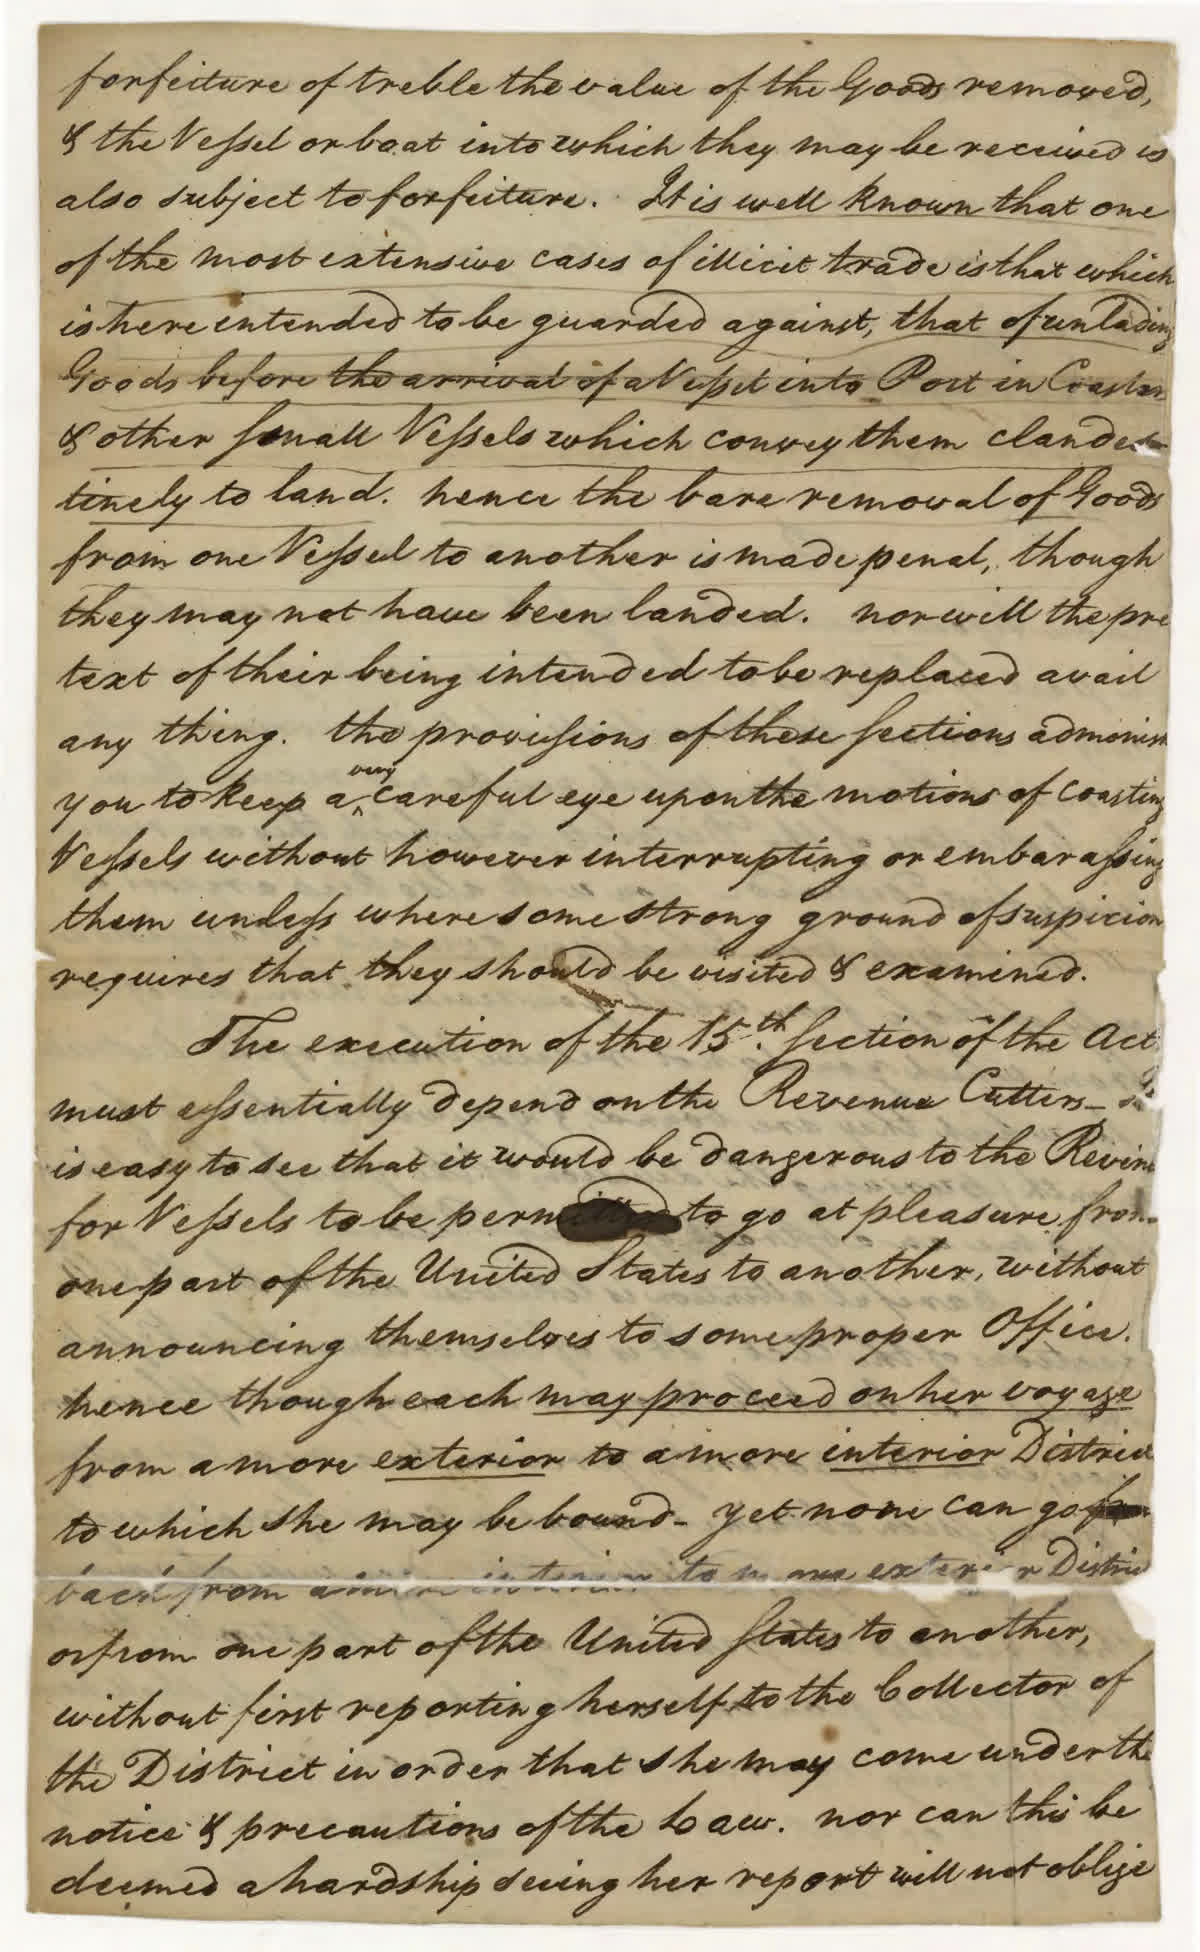 forfeiture of treble the value of the Goods removed,
& the Vessel or boat into which they may be received is
also subject to forfeiture. It is well known that one
of the most extensive cases of illicit trade is that which
is here intended to be guarded against, that of unlading
Goods before the arrival of a Vessel into Port in Coasters
& other small Vessels which convey them clandes-
tinely to land. hence the bare removal of Goods
from one Vessel to another is made penal, though
they may not have been landed. nor will the pre
text of their being intended to be replaced avail
any thing. the provisions of these sections admonish
very
you to keep a ^ careful eye upon the motions of coasting
Vessels without however interrupting or embarassing
them unless where some strong ground of suspicion
requires that they should be visited & examined.
The execution of the 15th. section of the Act
must essentially depend on the Revenue Cutters_
is easy to see that it would be dangerous to the Revenue
for Vessels to be permitted to go at pleasure from
one part of the United States to another, without
announcing themselves to some proper Office.
hence though each may proceed on her voyage
from a more exterior to a more interior District
to which she may be bound_ yet none can go
back from a more interior to a more exterior District
or from one part of the United States to another,
without first reporting herself to the Collector of
the District in order that she may come under the
notice & precautions of the Law. nor can this be
deemed a hardship seeing her report will not oblige